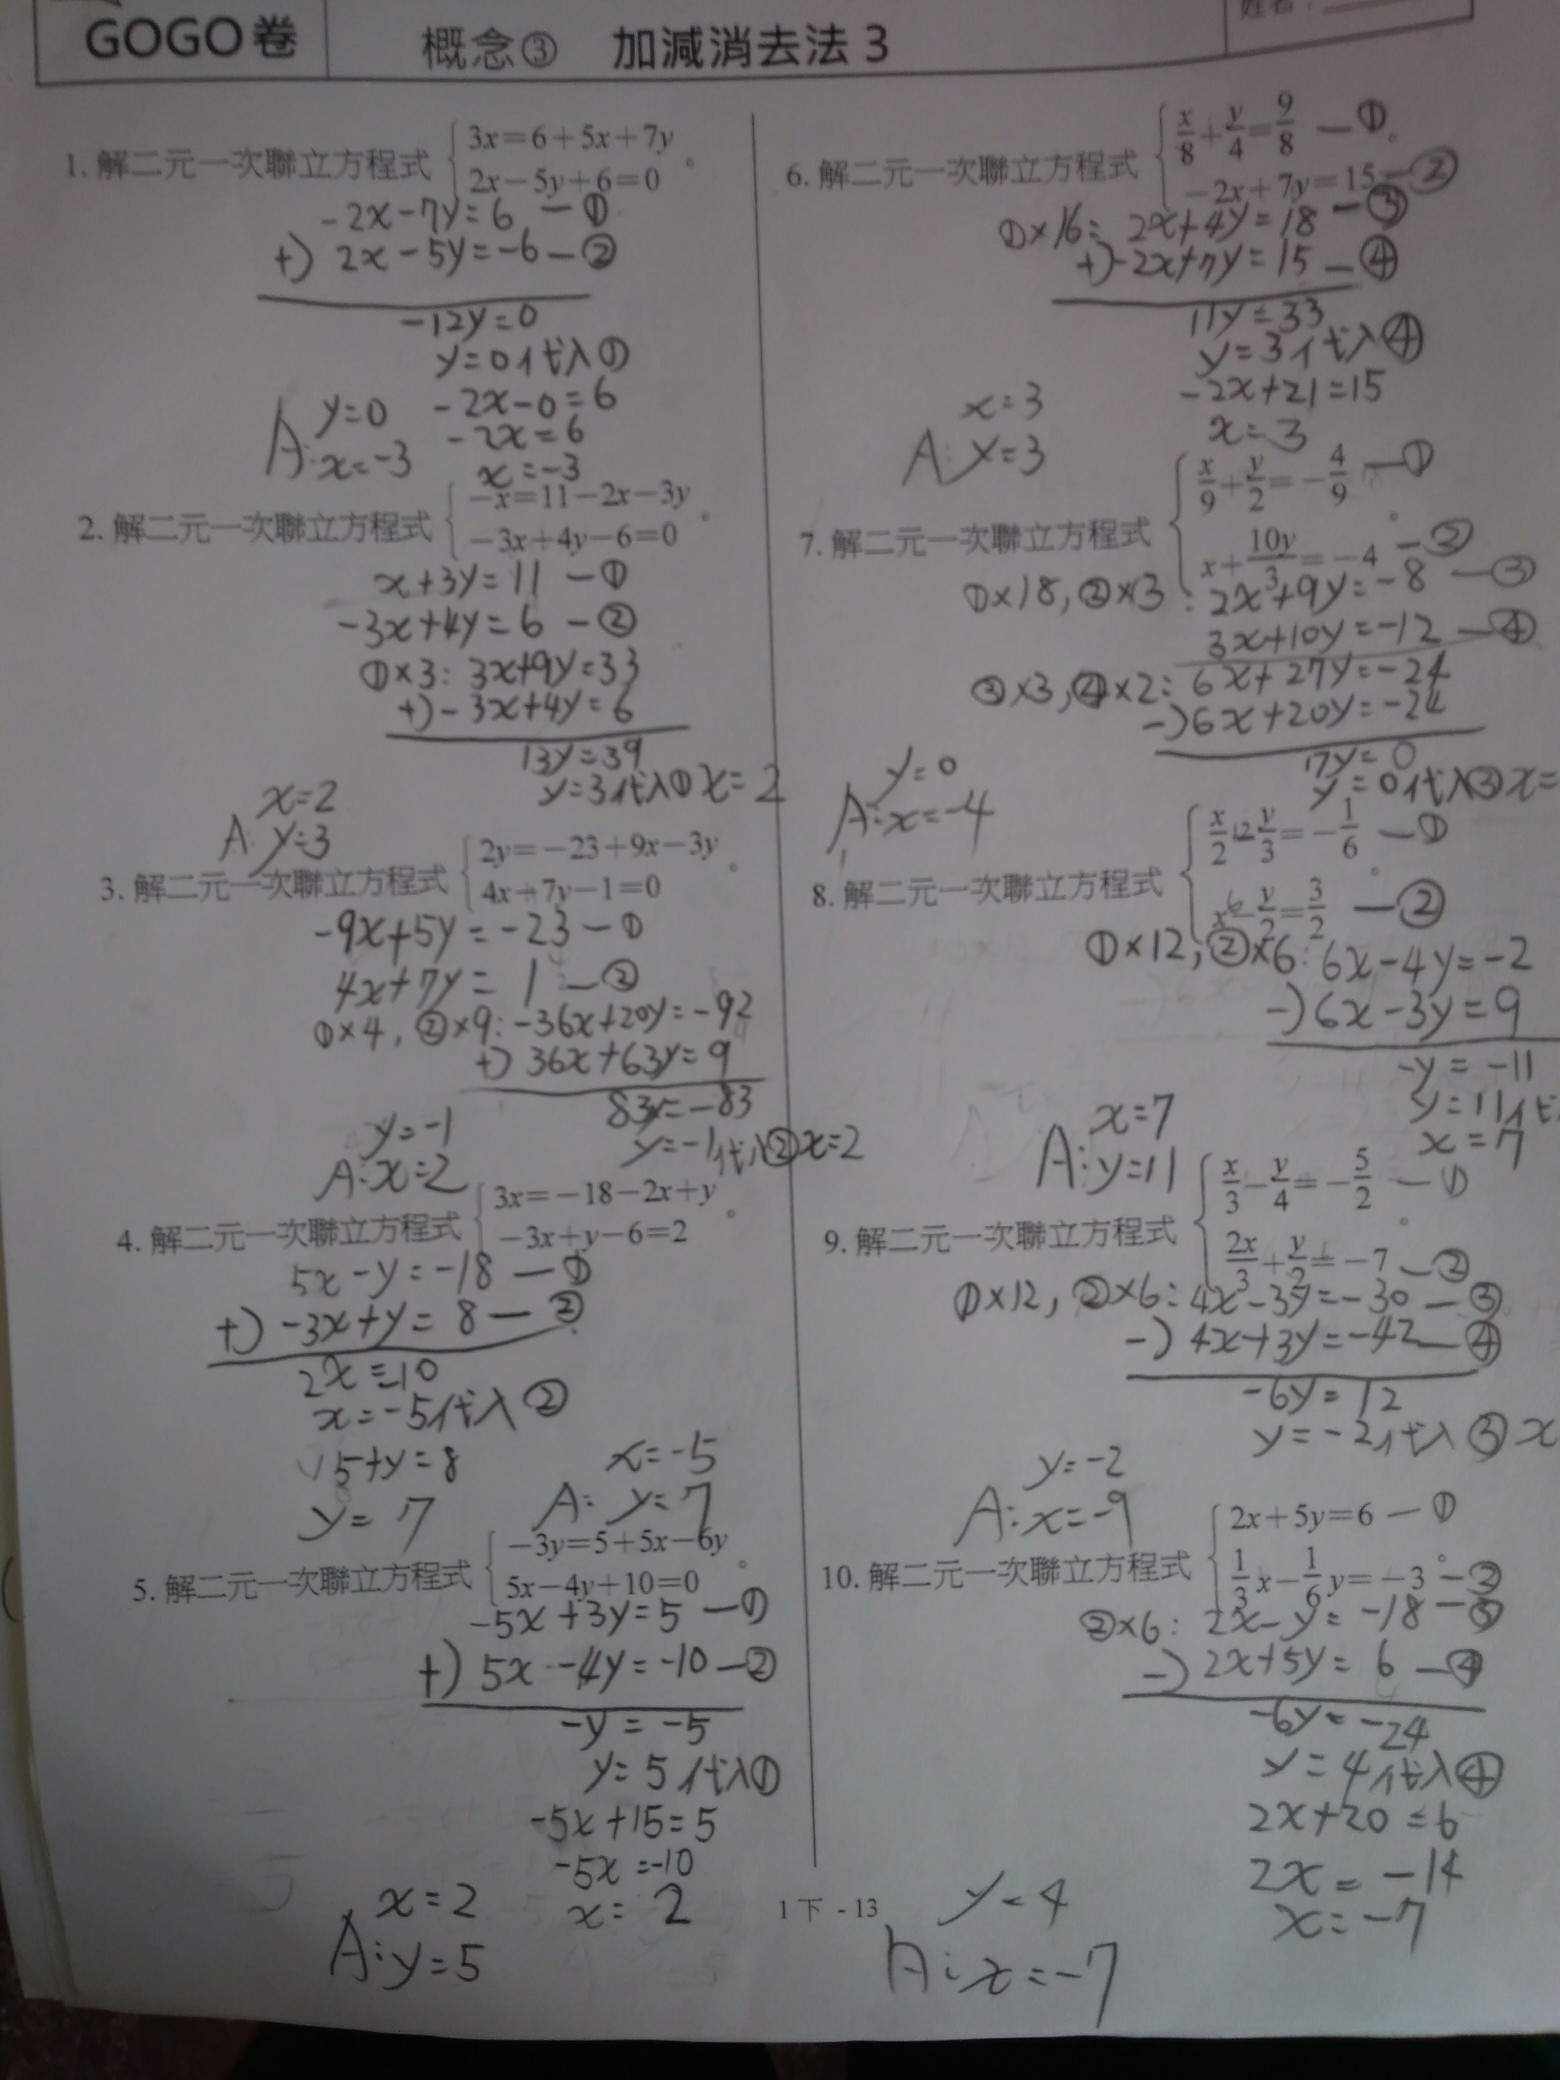 GOGO卷
概念③ 加減消去法3
姓名：
1. 解二元一次聯立方程式 { 3x=6+5x+7y
2x-5y+6=0 。
-2x-7y=6 -①
+) 2x-5y=-6-②
-12y=0
y=0代入①
-2x-0=6
-2x=6
x=-3
y=0
A: x=-3
2. 解二元一次聯立方程式 { -x=11-2x-3y
-3x+4y-6=0 。
x+3y=11 -①
-3x+4y=6 -②
①×3: 3x+9y=33
+)-3x+4y=6
13y=39
y=3代入① x=2
x=2
A: y=3
3. 解二元一次聯立方程式 { 2y=-23+9x-3y
4x+7y-1=0 。
-9x+5y=-23-①
4x+7y=1 -②
①×4, ②×9: -36x+20y=-92
+) 36x+63y=9
83y=-83
y=-1代入② x=2
y=-1
A: x=2
4. 解二元一次聯立方程式 { 3x=-18-2x+y
-3x+y-6=2 。
5x-y=-18 -①
+) -3x+y=8 -②
2x=-10
x=-5代入②
15+y=8
y=7
x=-5
A: y=7
5. 解二元一次聯立方程式 { -3y=5+5x-6y
5x-4y+10=0 。
-5x+3y=5 -①
+) 5x-4y=-10-②
-y=-5
y=5代入①
-5x+15=5
-5x=-10
x=2
x=2
A: y=5
6. 解二元一次聯立方程式 { x/8+y/4=9/8 -①
-2x+7y=15-② 。
①×16: 2x+4y=18 -③
+)-2x+7y=15 -④
11y=33
y=3代入④
-2x+21=15
x=3
x=3
A: y=3
7. 解二元一次聯立方程式 { x/9+y/2=-4/9 -①
x+10y/3=-4 -② 。
①×18, ②×3: 2x+9y=-8 -③
3x+10y=-12 -④
③×3, ④×2: 6x+27y=-24
-)6x+20y=-24
7y=0
y=0代入③ x=
y=0
A: x=-4
8. 解二元一次聯立方程式 { x/2 12 y/3=-1/6 -①
x 6 -y/2=3/2 -② 。
①×12, ②×6: 6x-4y=-2
-)6x-3y=9
-y=-11
y=11代
x=7
x=7
A: y=11
9. 解二元一次聯立方程式 { x/3-y/4=-5/2 -①
2x/3+y/2=-7 -② 。
①×12, ②×6: 4x-3y=-30 -③
-) 4x+3y=-42 -④
-6y=12
y=-2代入③ x
y=-2
A: x=-9
10. 解二元一次聯立方程式 { 2x+5y=6 -①
1/3x-1/6y=-3 -② 。
②×6: 2x-y=-18 -③
-) 2x+5y=6 -④
-6y=-24
y=4代入④
2x+20=6
2x=-14
x=-7
y=4
A: x=-7
1下-13